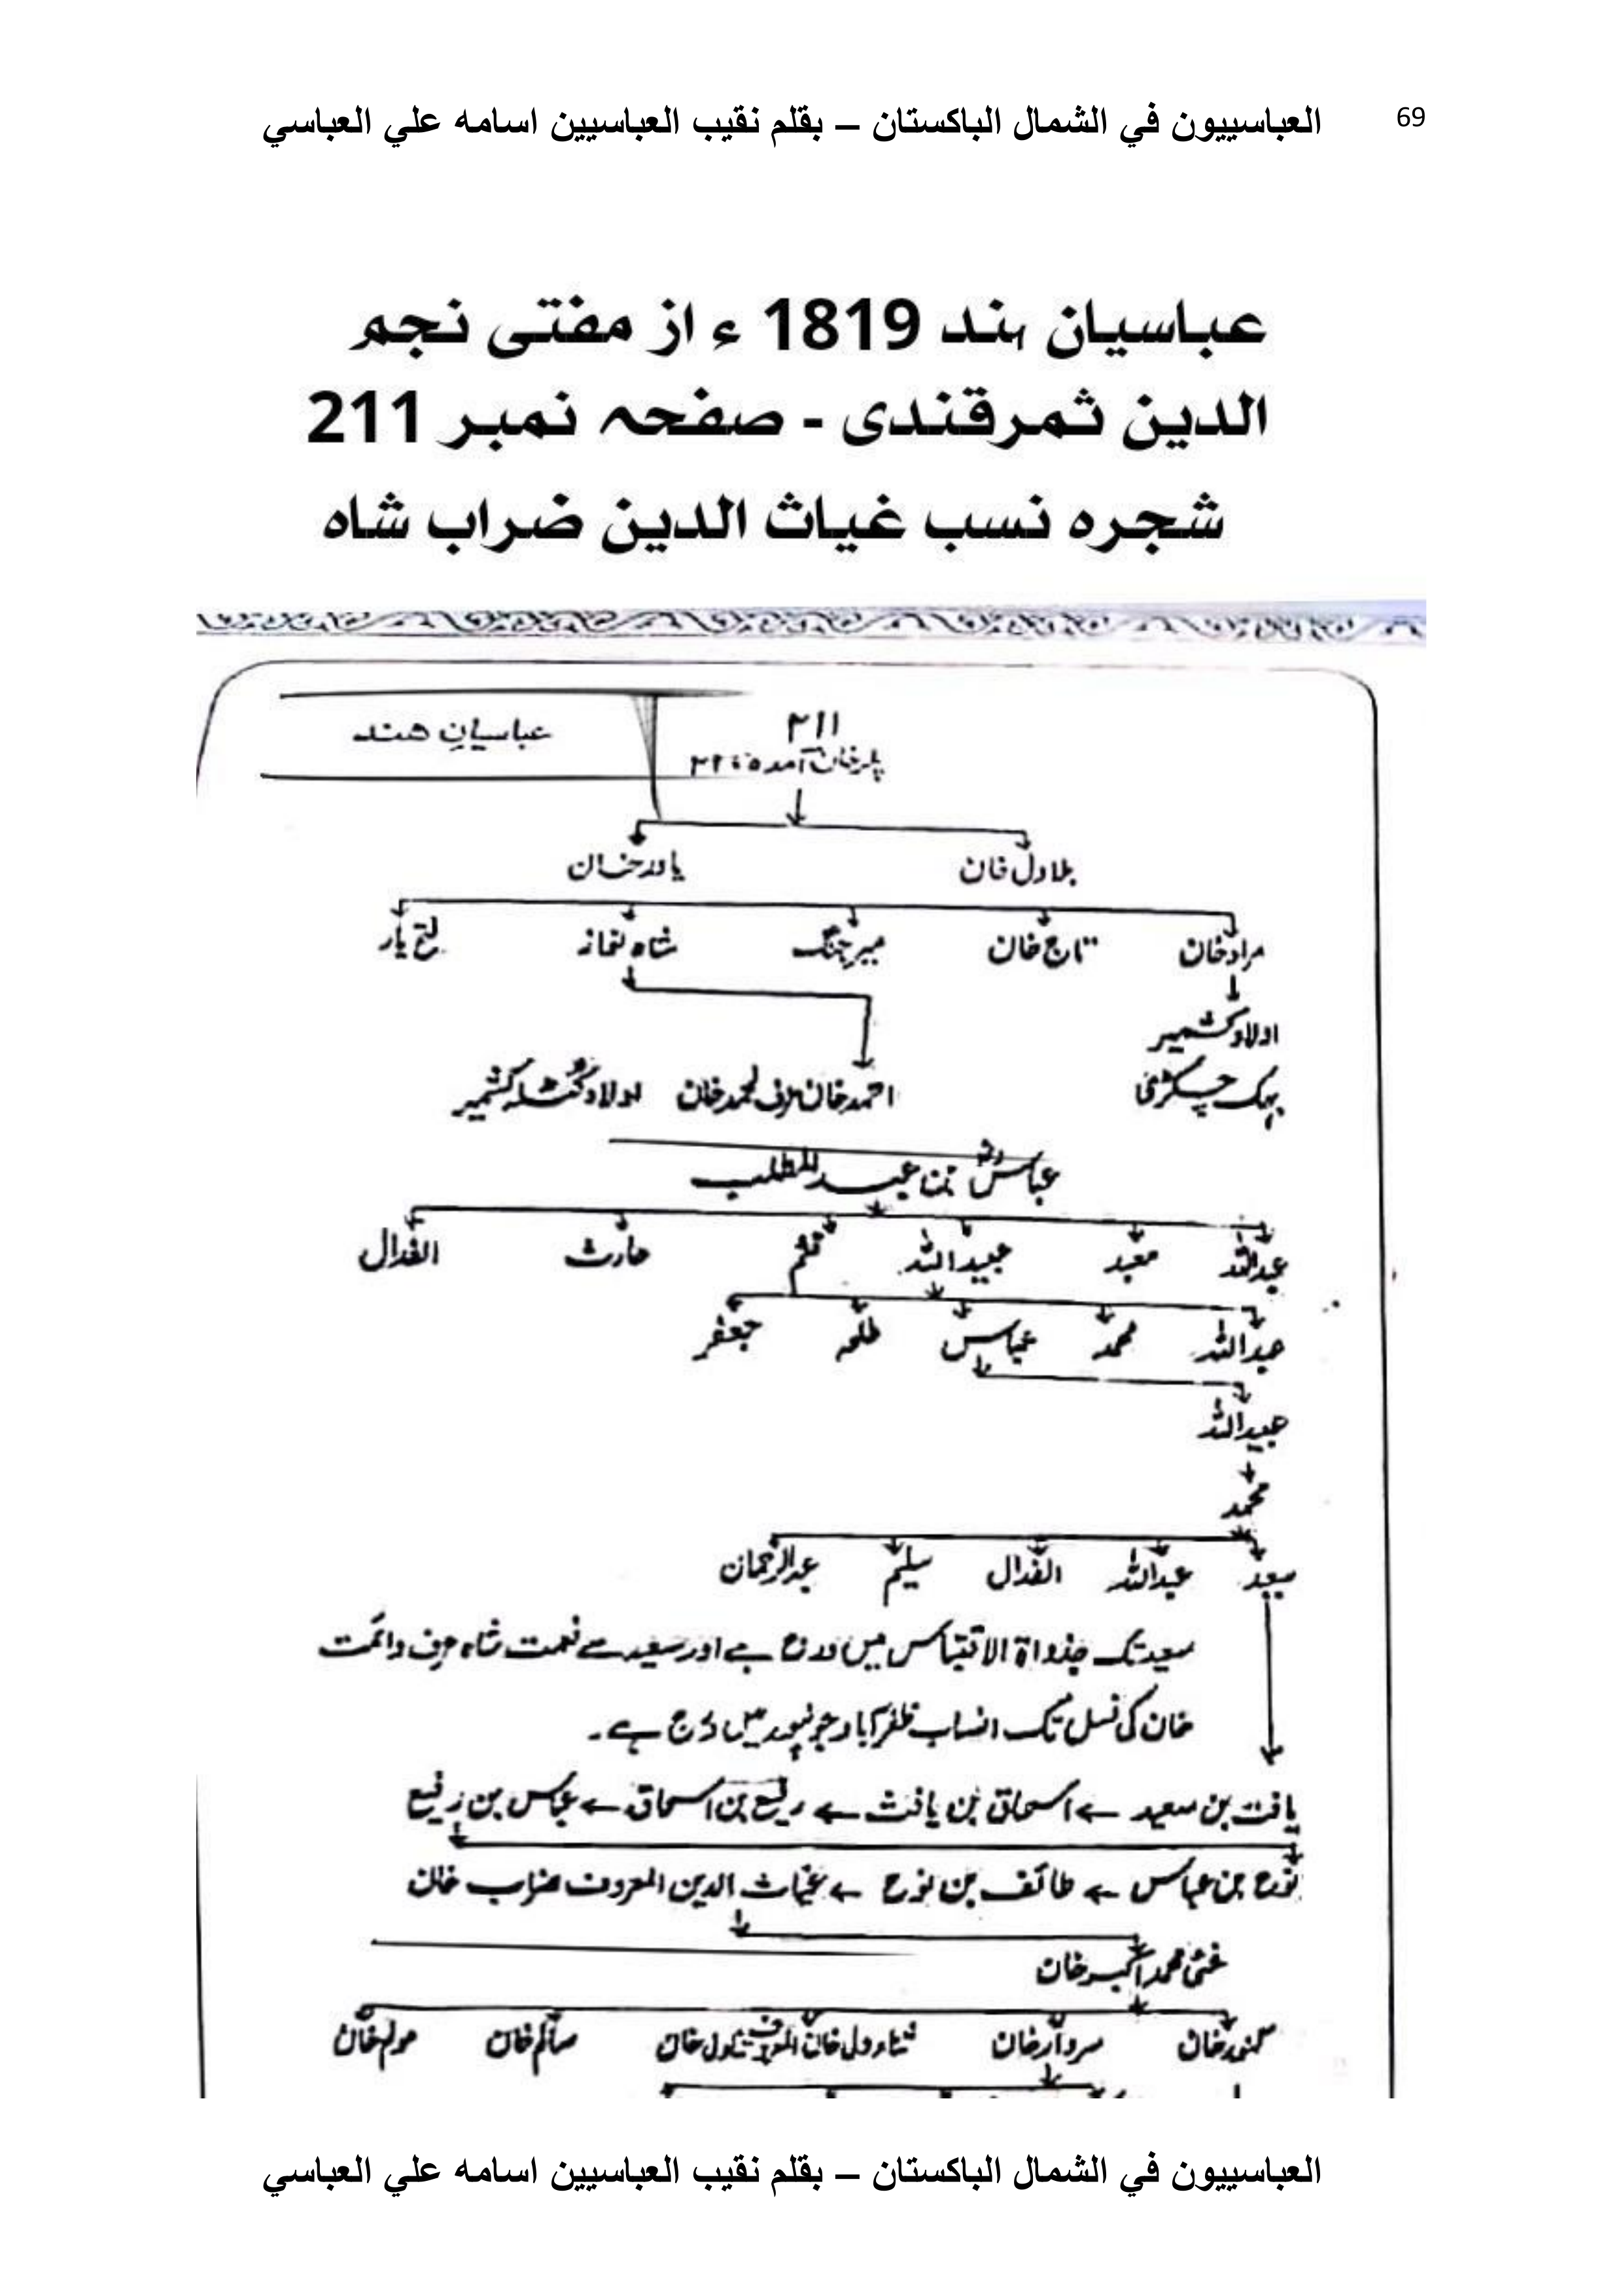 69
العباسييون في الشمال الباكستان – بقلم نقيب العباسيين اسامه علي العباسي
عباسيان ہند 1819 ء از مفتی نجم
الدین ثمرقندی - صفحہ نمبر 211
شجرہ نسب غیاث الدین ضراب شاہ
۲۱۱
عباسیانِ ھند
بلاول خان یاور خان
مراد خان تاج خان میر جنگ شاہ نماز فتح یار
اولاد کشمیر
احمد خان عرف محمد خان اولاد کشمیر
عباسؓ بن عبدالمطلب
عبداللہ معبد عبیداللہ قثم حارث الفدال
عبداللہ محمد عباس طلحہ جعفر
عبیداللہ
محمد
سعید عبداللہ الفدال سلیم عبدالرحمان
سعید تک جذواۃ الاقتباس میں درج ہے اور سعید سے نعمت شاہ عرف دائمت
خان کی نسل تک انساب ظفرآباد جونپور میں درج ہے۔
یافث بن سعید ← اسحاق بن یافث ← رفیع بن اسحاق ← عباس بن رفیع
نوح بن عباس ← طائف بن نوح ← غیاث الدین المعروف ضراب خان
غنی محمد اکبر خان
کنور خان سردار خان ثناء ول خان المعروف خان سالم خان مولم خان
العباسييون في الشمال الباكستان – بقلم نقيب العباسيين اسامه علي العباسي